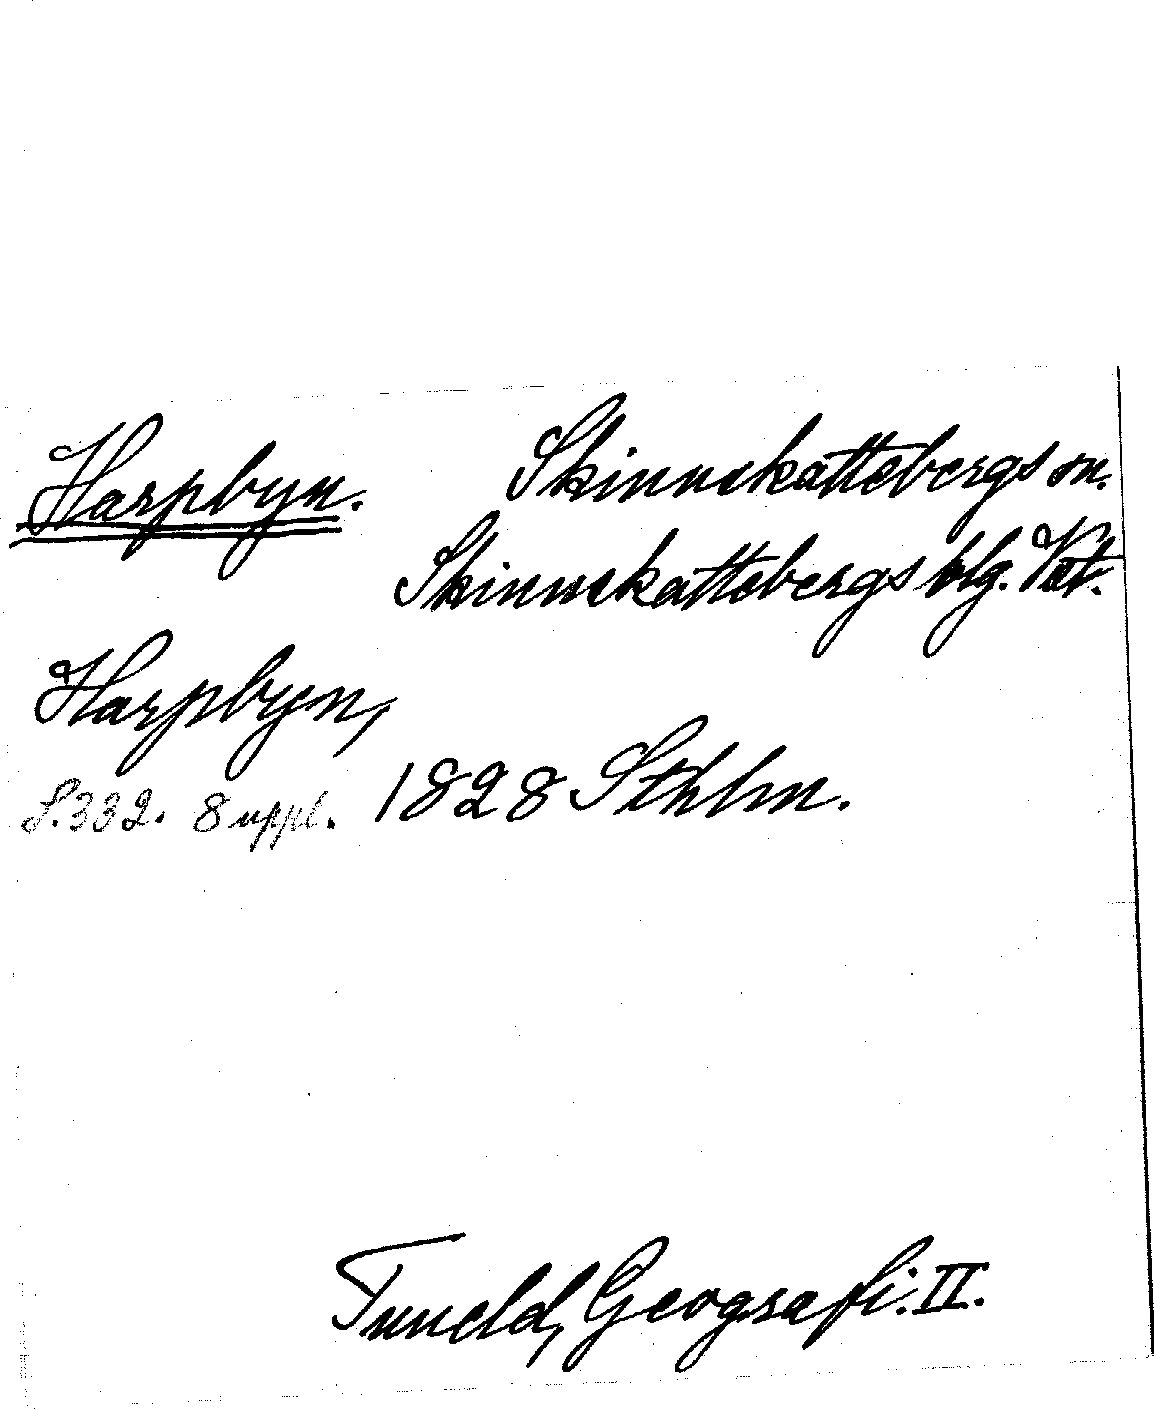 Harpbyn. Skinnskattebergs sn.
Skinnskattebergs blg. Vst.
Harpbyn,
S. 332. 8 uppl. 1828 Sthlm.
Tuneld, Geografi. II.